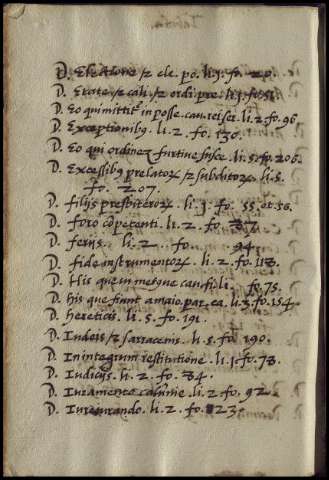 Tabula
D. Electione et ele. po. li. 1. fo. 20.
D. Etate et cali. et ordi. pre. li. 1. fo. 51.
D. Eo qui mittitr in posse. cau. rei ser. li. 2. fo. 96.
D. Exceptionibꝰ. li. 2. fo. 130.
D. Eo qui ordinez furtive susce. li. 5. fo. 206.
D. Excessibꝰ prelatoꝝ et subditoꝝ. li. 5.
fo. 207.
D. Filijs presbiteroꝝ. li. 1. fo. 55. et. 56.
D. foro cõpetenti. li. 2. fo. 87
D. ferijs. li. 2. fo. 94.
D. fide instrumentoꝝ. li. 2. fo. 118.
D. His que in mẽse cau. fi. li. fo. 75.
D. his que fiunt a maio. par. ca. li. 3. fo. 154.
D. hereticis. li. 5. fo. 191.
D. Iudeis et sarracenis. li. 5. fo. 190.
D. In integrum restitutione. li. 1. fo. 78.
D. Iudicijs. li. 2. fo. 84.
D. Iuramento calũnie. li. 2. fo. 92.
D. Iureiurando. li. 2. fo. 123.